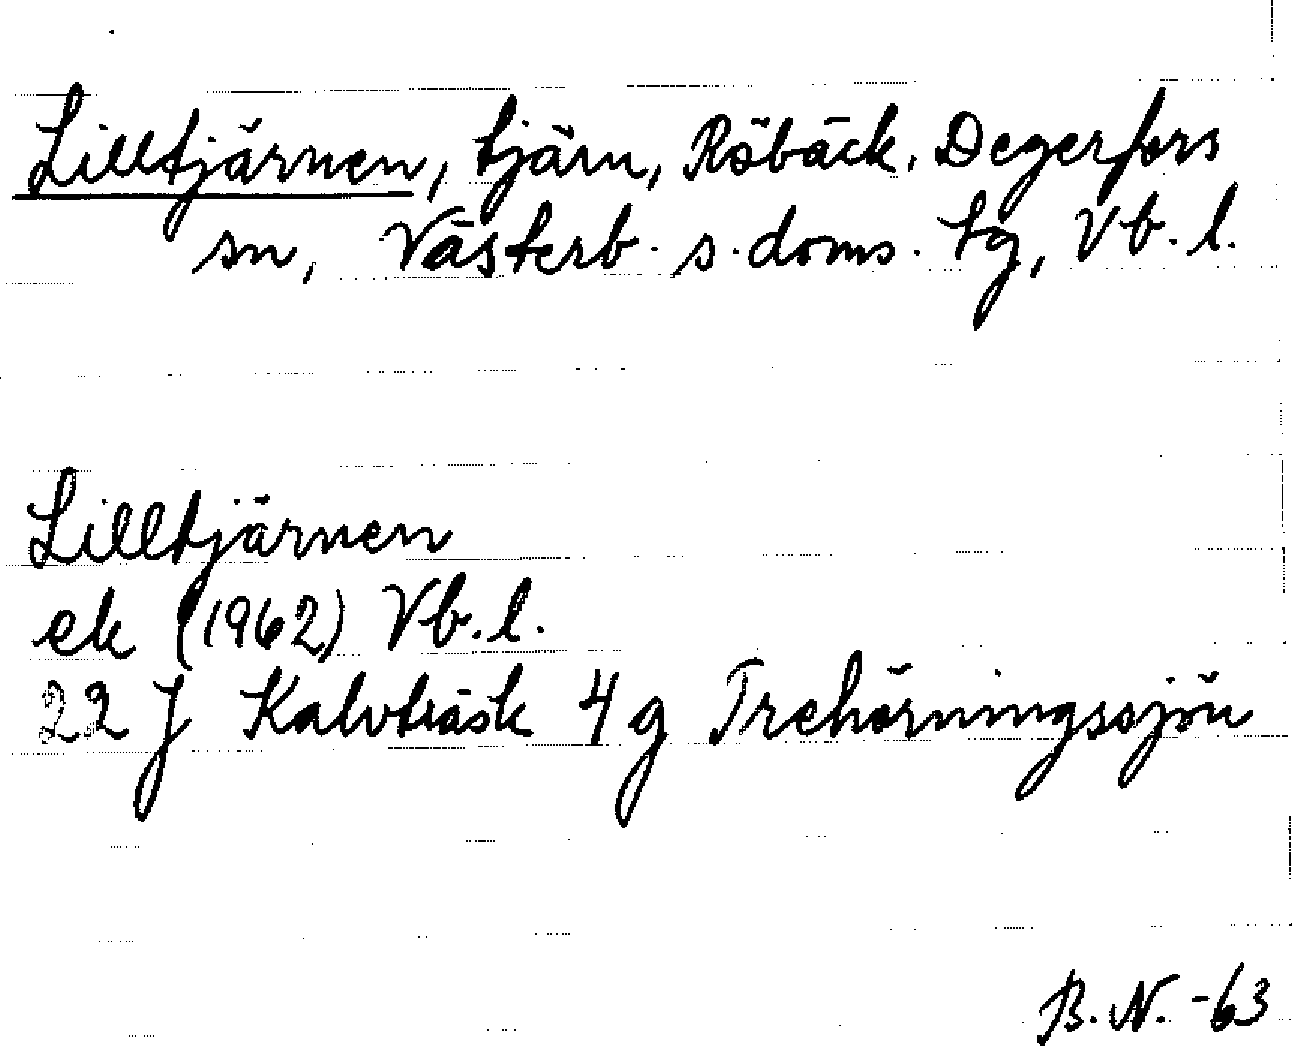 Lilltjärnen, tjärn, Röbäck, Degerfors
sn, Västerb. s. doms. tg, Vb. l.
Lilltjärnen
ek (1962) Vb. l.
22 J Kalvträsk 4 g Trehörningssjön
B. N. -63